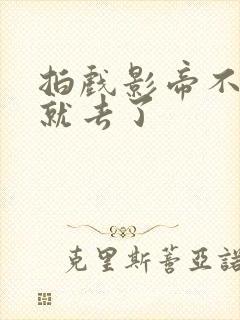 拍戏影帝不
就去了
克里斯蒼亞諾